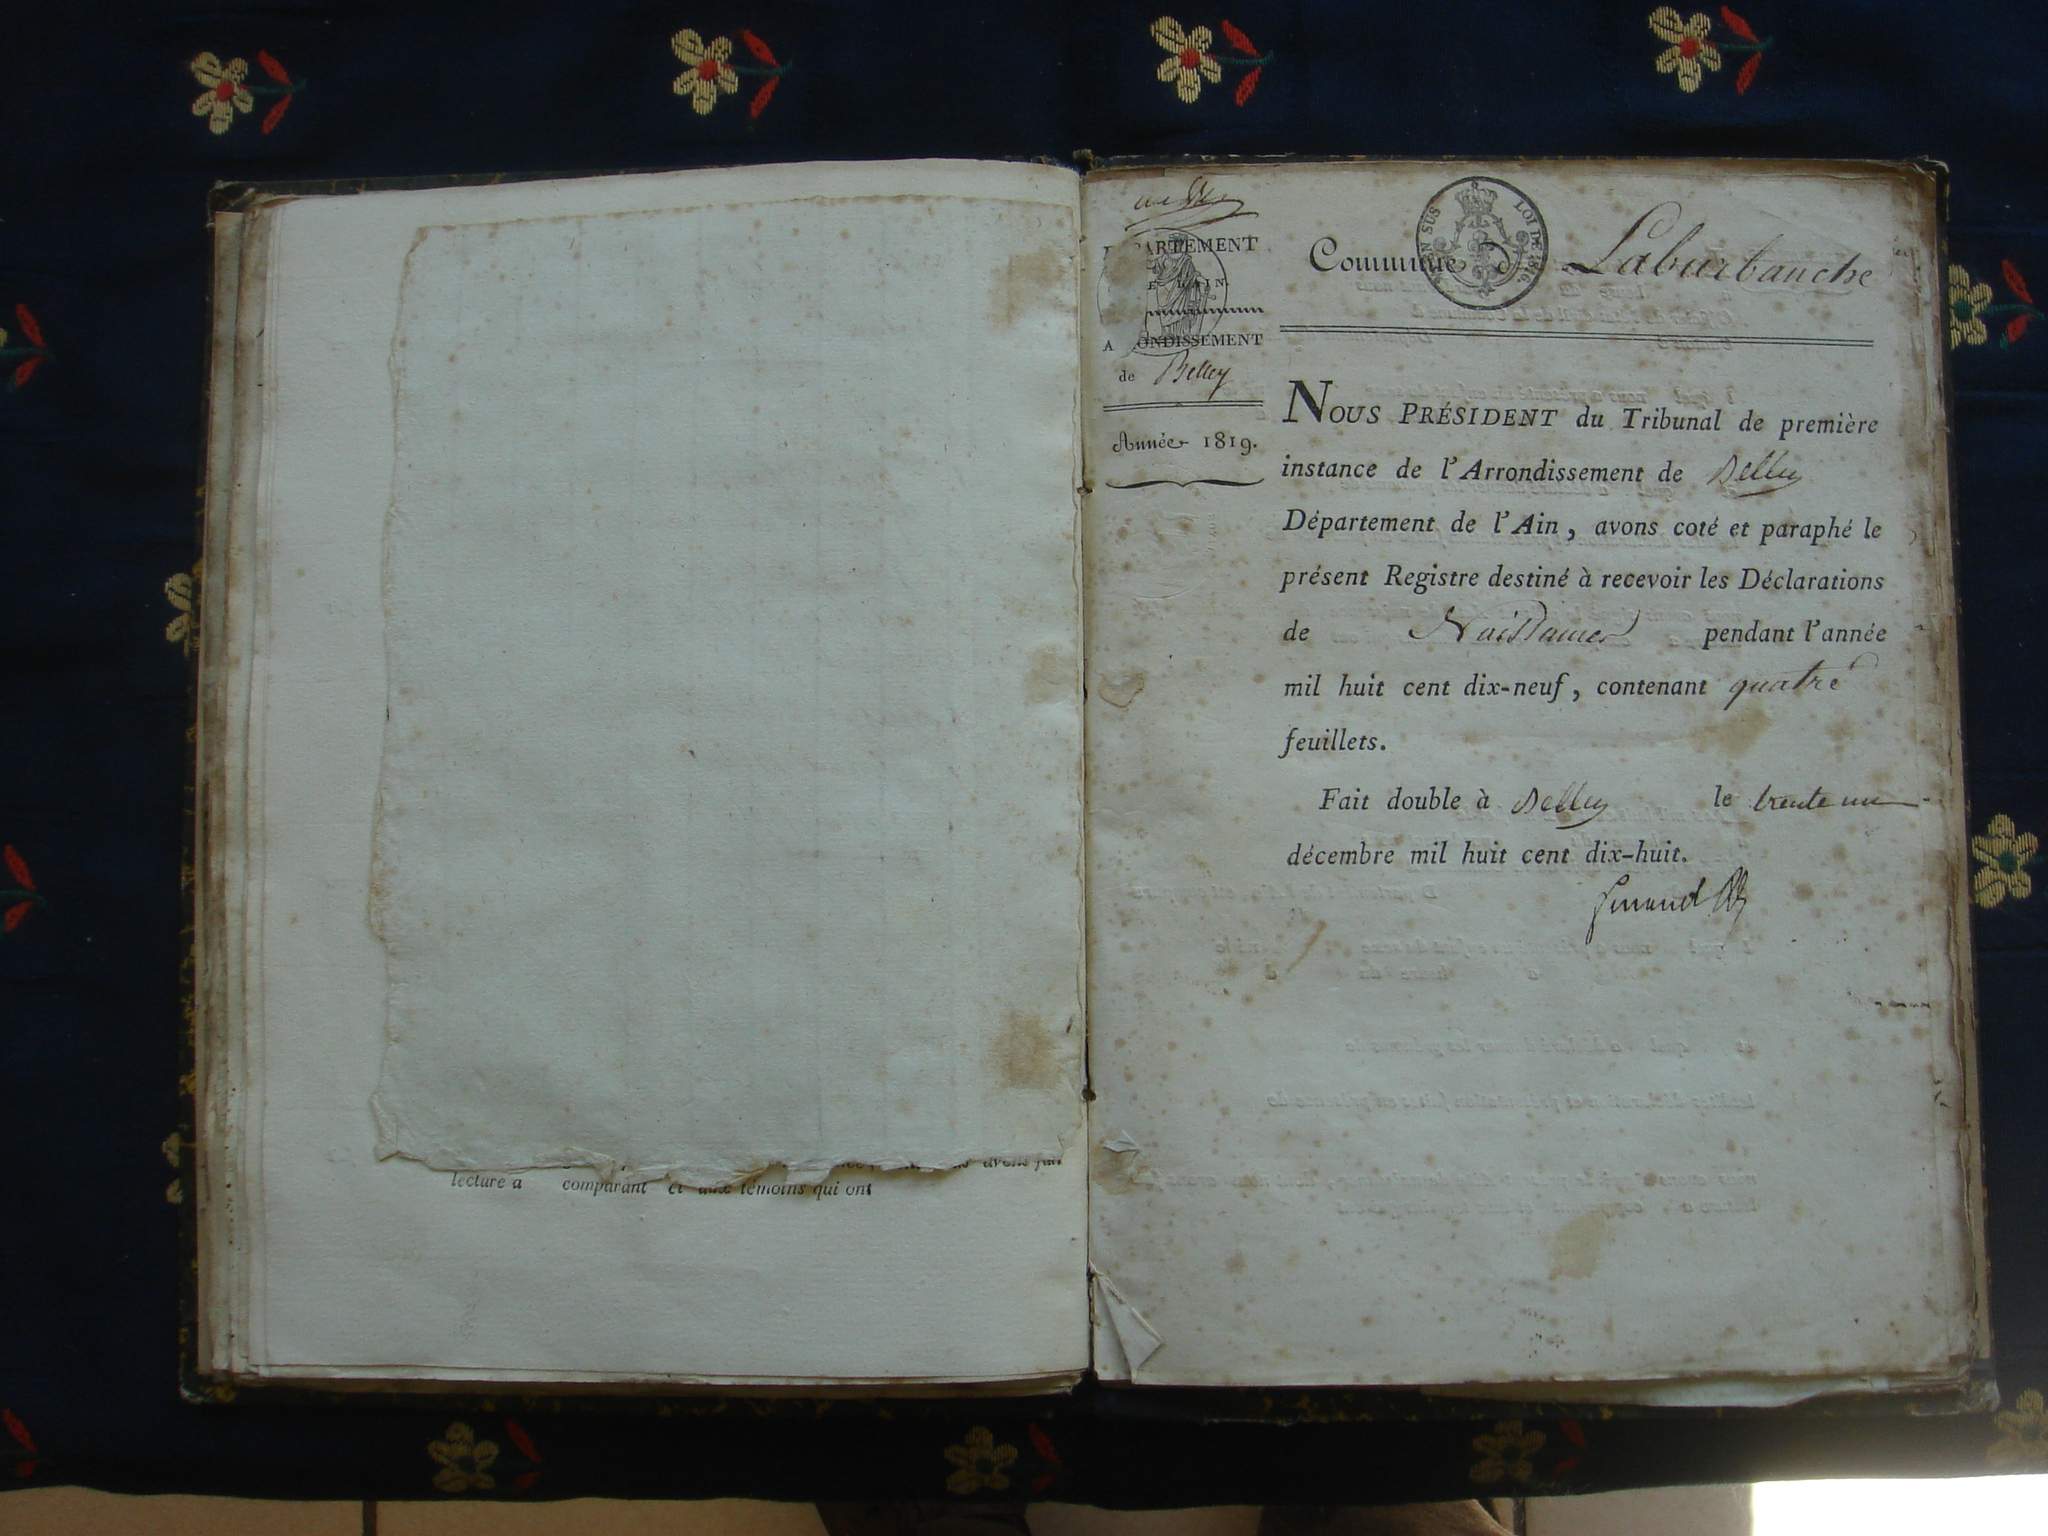 lecture a comparant et aux témoins qui ont
DÉPARTEMENT
DE L'AIN.
ARRONDISSEMENT
de Belley
Année 1819.
EN SUS LOI DE 1816.
Commune de Laburbanche
NOUS PRÉSIDENT du Tribunal de première
instance de l'Arrondissement de Belley
Département de l'Ain, avons coté et paraphé le
présent Registre destiné à recevoir les Déclarations
de Naissances pendant l'année
mil huit cent dix-neuf, contenant quatre
feuillets.
Fait double à Belley le trente un
décembre mil huit cent dix-huit.